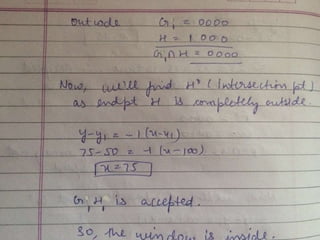 outcode G₁ = 0000
H = 1000
G₁∩H = 0000
Now, we'll find H' (Intersection pt)
as endpt H is completely outside.
y-y₁ = -1(x-x₁)
75-50 = -1(x-100)
x=75
G₁H₁ is accepted.
So, the window is inside.